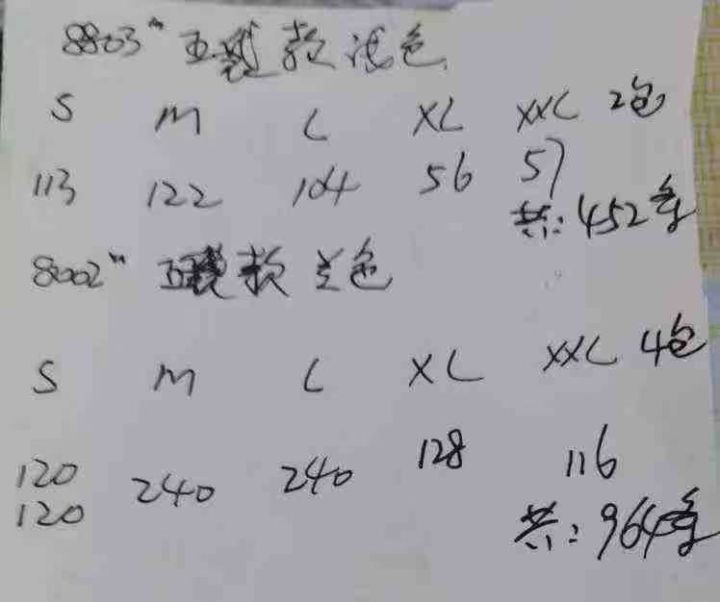 8803# 五 款 浅色
S M L XL XXL 2包
113 122 104 56 57
共:452条
8002# 五 款 兰色
S M L XL XXL 4包
120 240 240 128 116
120
共:964条